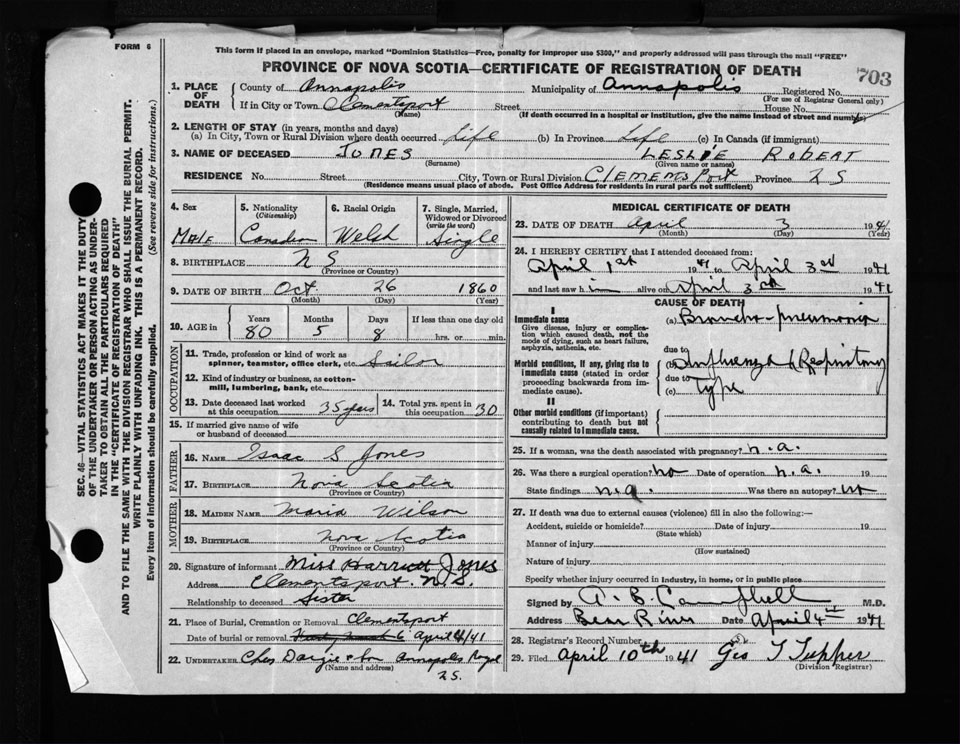 FORM 6
This form if placed in an envelope, marked "Dominion Statistics—Free, penalty for improper use $300," and properly addressed will pass through the mail "FREE"
PROVINCE OF NOVA SCOTIA—CERTIFICATE OF REGISTRATION OF DEATH
703
1. PLACE OF DEATH
County of Annapolis Municipality of Annapolis Registered No.
(For use of Registrar General only)
If in City or Town Clementsport Street House No.
(Name) (If death occurred in a hospital or institution, give the name instead of street and number)
2. LENGTH OF STAY (in years, months and days)
(a) In City, Town or Rural Division where death occurred Life (b) In Province Life (c) In Canada (if immigrant)
3. NAME OF DECEASED JONES LESLIE ROBERT
(Surname) (Given name or names)
RESIDENCE No. Street City, Town or Rural Division CLEMENSPORT Province NS
(Residence means usual place of abode. Post Office Address for residents in rural parts not sufficient)
4. Sex MALE
5. Nationality (Citizenship) Canadian
6. Racial Origin Welch
7. Single, Married, Widowed or Divorced (write the word) Single
8. BIRTHPLACE N S
(Province or Country)
9. DATE OF BIRTH Oct 26 1860
(Month) (Day) (Year)
10. AGE in Years Months Days If less than one day old
80 5 8 hrs. or min.
OCCUPATION
11. Trade, profession or kind of work as spinner, teamster, office clerk, etc. Sailor
12. Kind of industry or business, as cotton-mill, lumbering, bank, etc.
13. Date deceased last worked at this occupation 35 years
14. Total yrs. spent in this occupation 30
15. If married give name of wife or husband of deceased
FATHER
16. NAME Isaac S Jones
17. BIRTHPLACE Nova Scotia
(Province or Country)
MOTHER
18. MAIDEN NAME Maria Wilson
19. BIRTHPLACE Nova Scotia
(Province or Country)
20. Signature of informant Miss Harriett Jones
Address Clementsport. N.S.
Relationship to deceased Sister
21. Place of Burial, Cremation or Removal Clementsport
Date of burial or removal 6 April /41
22. UNDERTAKER Chas Dargie & Son Annapolis Royal
(Name and address)
NS.
MEDICAL CERTIFICATE OF DEATH
23. DATE OF DEATH April 3 1941
(Month) (Day) (Year)
24. I HEREBY CERTIFY that I attended deceased from:
April 1st 1941 to April 3rd 1941
and last saw him alive on April 3rd 1941
CAUSE OF DEATH
I
Immediate cause
Give disease, injury or complication which caused death, not the mode of dying, such as heart failure, asphyxia, asthenia, etc.
(a) Broncho-pneumonia
due to
Morbid conditions, if any, giving rise to immediate cause (stated in order proceeding backwards from immediate cause).
(b) Influenza (Respiratory
due to
(c) Type
II
Other morbid conditions (if important) contributing to death but not causally related to immediate cause.
25. If a woman, was the death associated with pregnancy? n.a.
26. Was there a surgical operation? no Date of operation n.a. 19
State findings n.a. Was there an autopsy? no
27. If death was due to external causes (violence) fill in also the following:—
Accident, suicide or homicide? Date of injury 19
(State which)
Manner of injury
(How sustained)
Nature of injury
Specify whether injury occurred in industry, in home, or in public place
Signed by A. B. Campbell M.D.
Address Bear River Date April 4th 1941
28. Registrar's Record Number
29. Filed April 10th 1941 Geo T Tupper
(Division Registrar)
SEC. 46—VITAL STATISTICS ACT MAKES IT THE DUTY
OF THE UNDERTAKER OR PERSON ACTING AS UNDER-
TAKER TO OBTAIN ALL THE PARTICULARS REQUIRED
IN THE "CERTIFICATE OF REGISTRATION OF DEATH"
AND TO FILE THE SAME WITH THE DIVISION REGISTRAR WHO SHALL ISSUE THE BURIAL PERMIT.
WRITE PLAINLY WITH UNFADING INK. THIS IS A PERMANENT RECORD.
Every item of information should be carefully supplied. (See reverse side for instructions.)